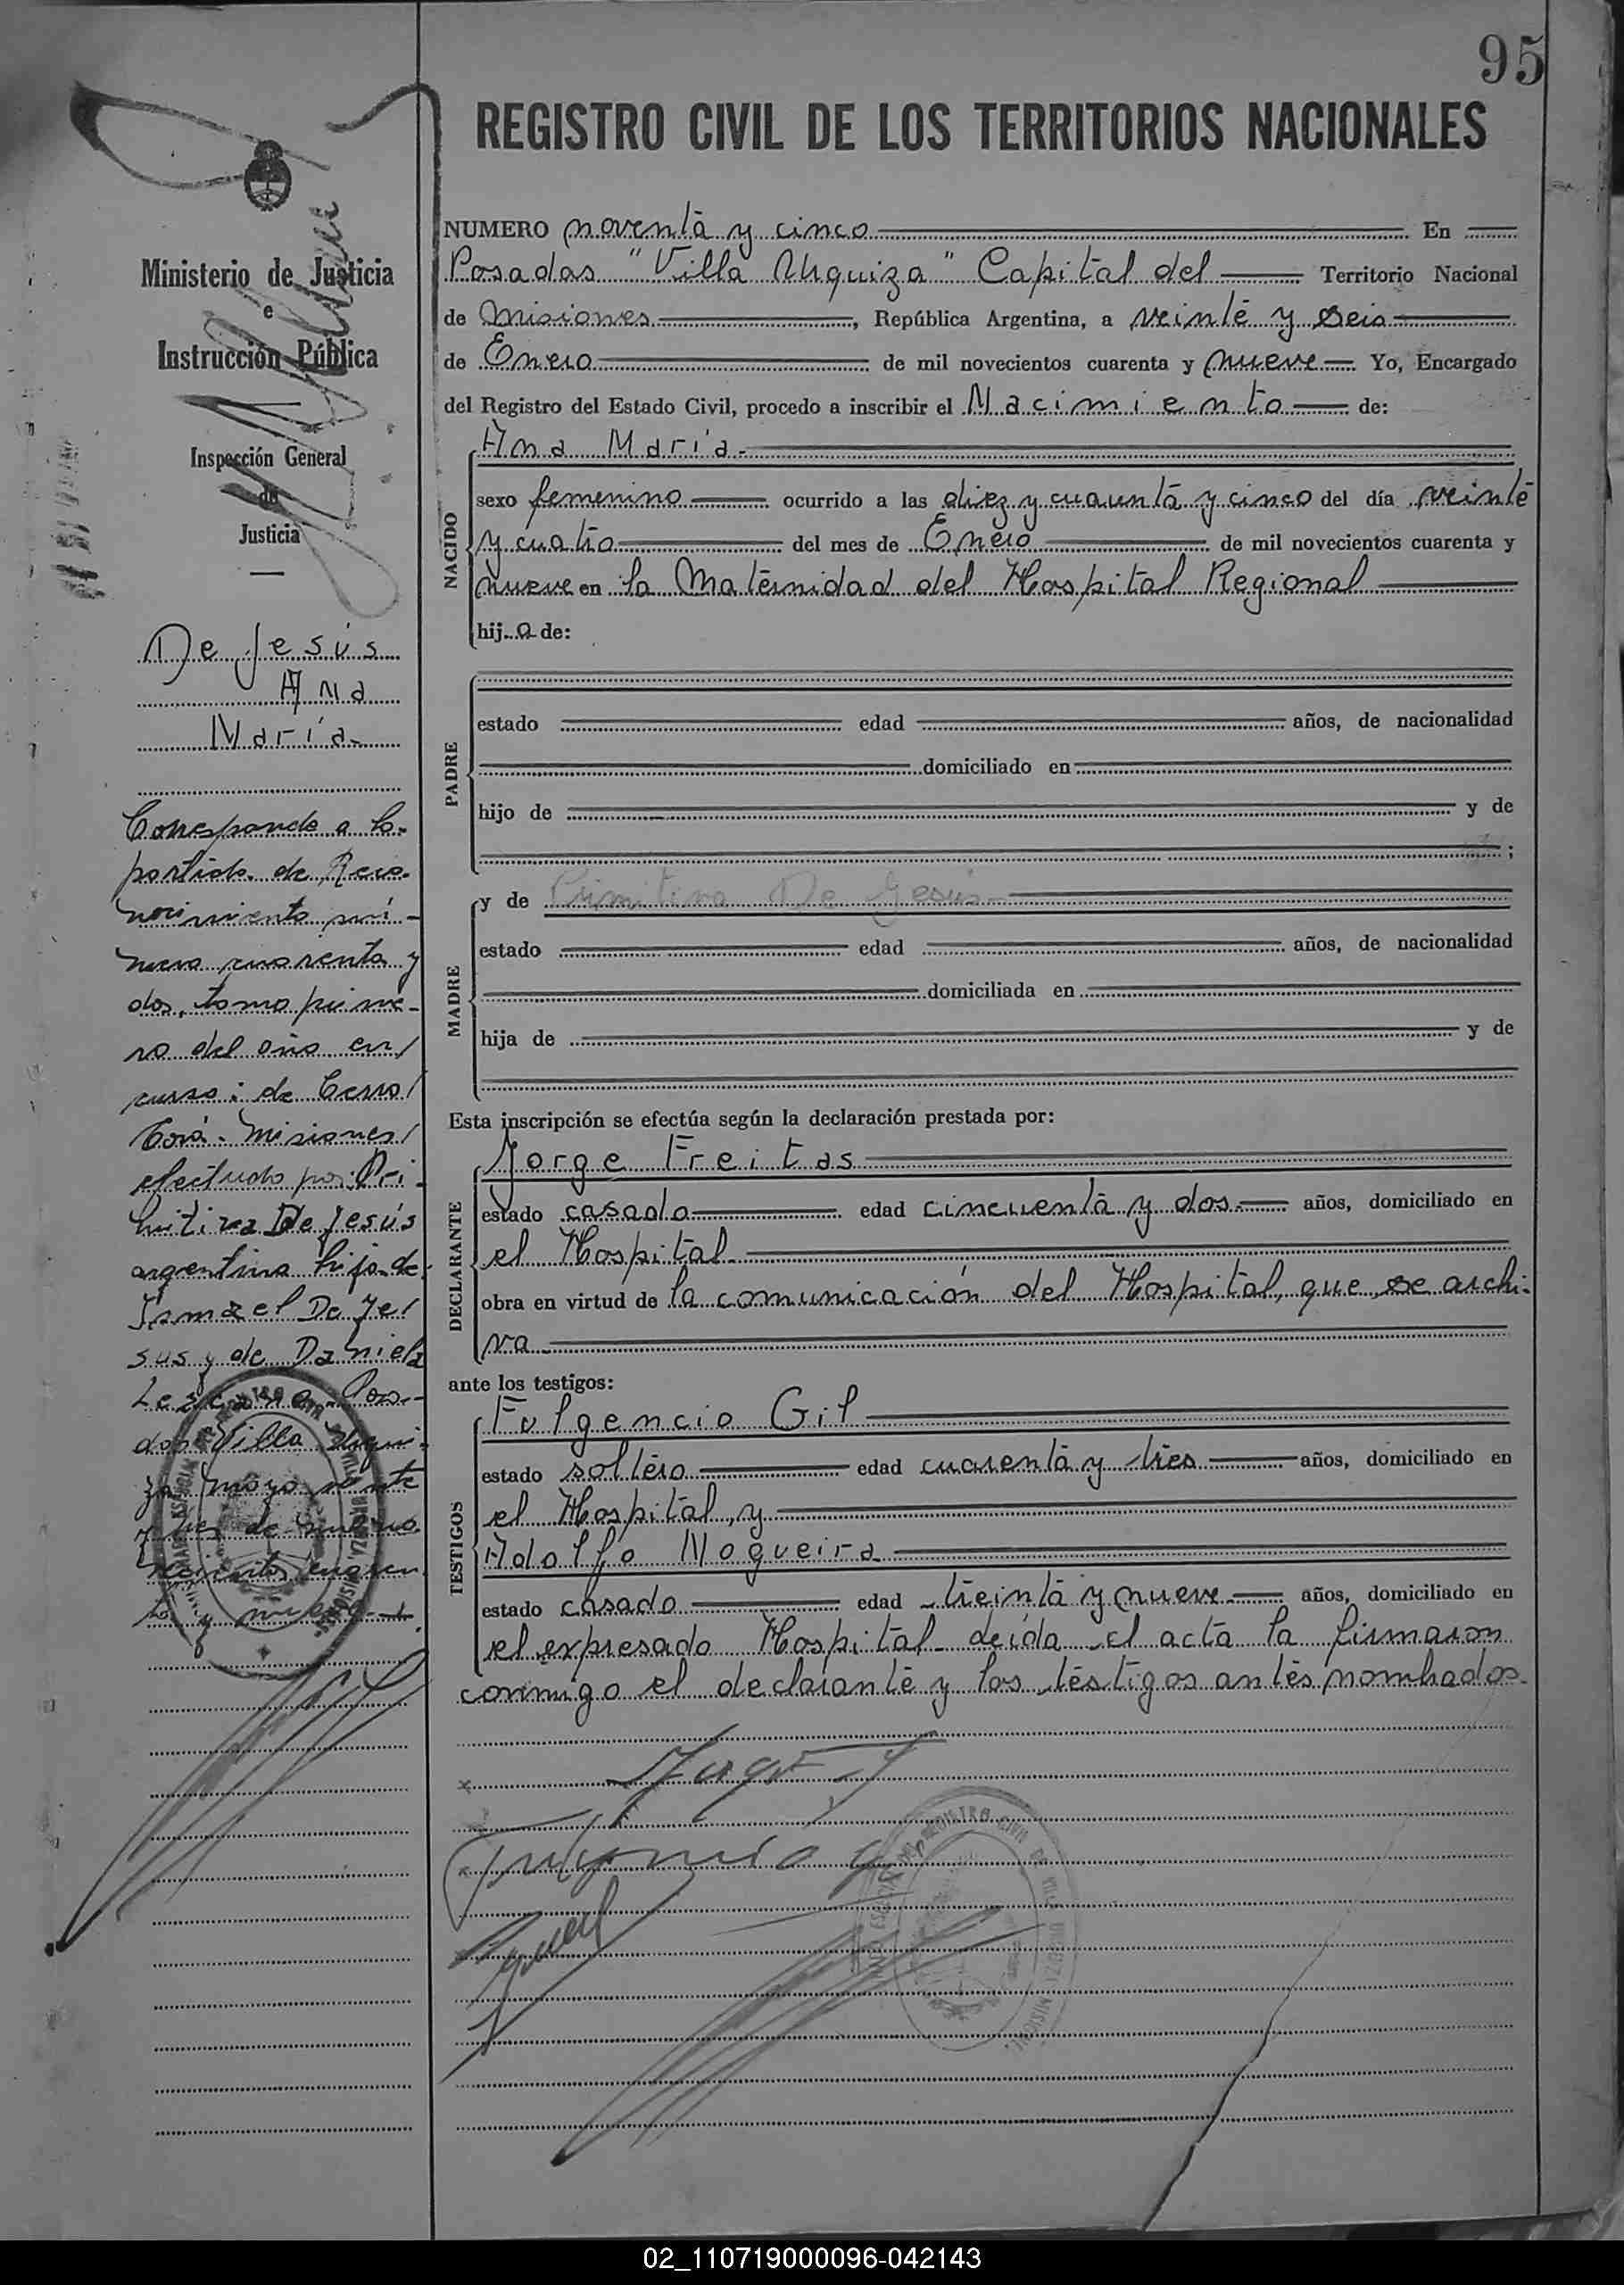 95
REGISTRO CIVIL DE LOS TERRITORIOS NACIONALES
Ministerio de Justicia
e
Instrucción Pública
Inspección General
de
Justicia
De Jesús
Ana
María-
Corresponde a la
partida de Reco-
nocimiento nú-
mero cuarenta y
dos, tomo prime-
ro del año en
curso; de Cerro
Corá - Misiones
efectuado por: Pri-
mitiva De Jesús
argentina hija de
Ismael De Je
sús y de Daniela
Posa-
das "Villa Urqui-
za mayo veinte
y tres de mil no-
vecientos cuaren
ta y nueve.-
NUMERO noventa y cinco En
Posadas "Villa Urquiza" Capital del Territorio Nacional
de Misiones, República Argentina, a veinte y seis
de Enero de mil novecientos cuarenta y nueve Yo, Encargado
del Registro del Estado Civil, procedo a inscribir el Nacimiento de:
NACIDO
Ana María.
sexo femenino ocurrido a las diez y cuarenta y cinco del día veinte
y cuatro del mes de Enero de mil novecientos cuarenta y
nueve en la Maternidad del Hospital Regional
hij a de:
PADRE
estado edad años, de nacionalidad
domiciliado en
hijo de y de
;
MADRE
y de Primitiva De Jesús-
estado edad años, de nacionalidad
domiciliada en
hija de y de
Esta inscripción se efectúa según la declaración prestada por:
DECLARANTE
Jorge Freitas
estado casado edad cincuenta y dos años, domiciliado en
el Hospital.
obra en virtud de la comunicación del Hospital, que se archi-
va.
ante los testigos:
TESTIGOS
Fulgencio Gil
estado soltero edad cuarenta y tres años, domiciliado en
el Hospital, y
Adolfo Nogueira
estado casado edad treinta y nueve años, domiciliado en
el expresado Hospital. Leída el acta la firmaron
conmigo el declarante y los testigos antes nombrados.
02_110719000096-042143